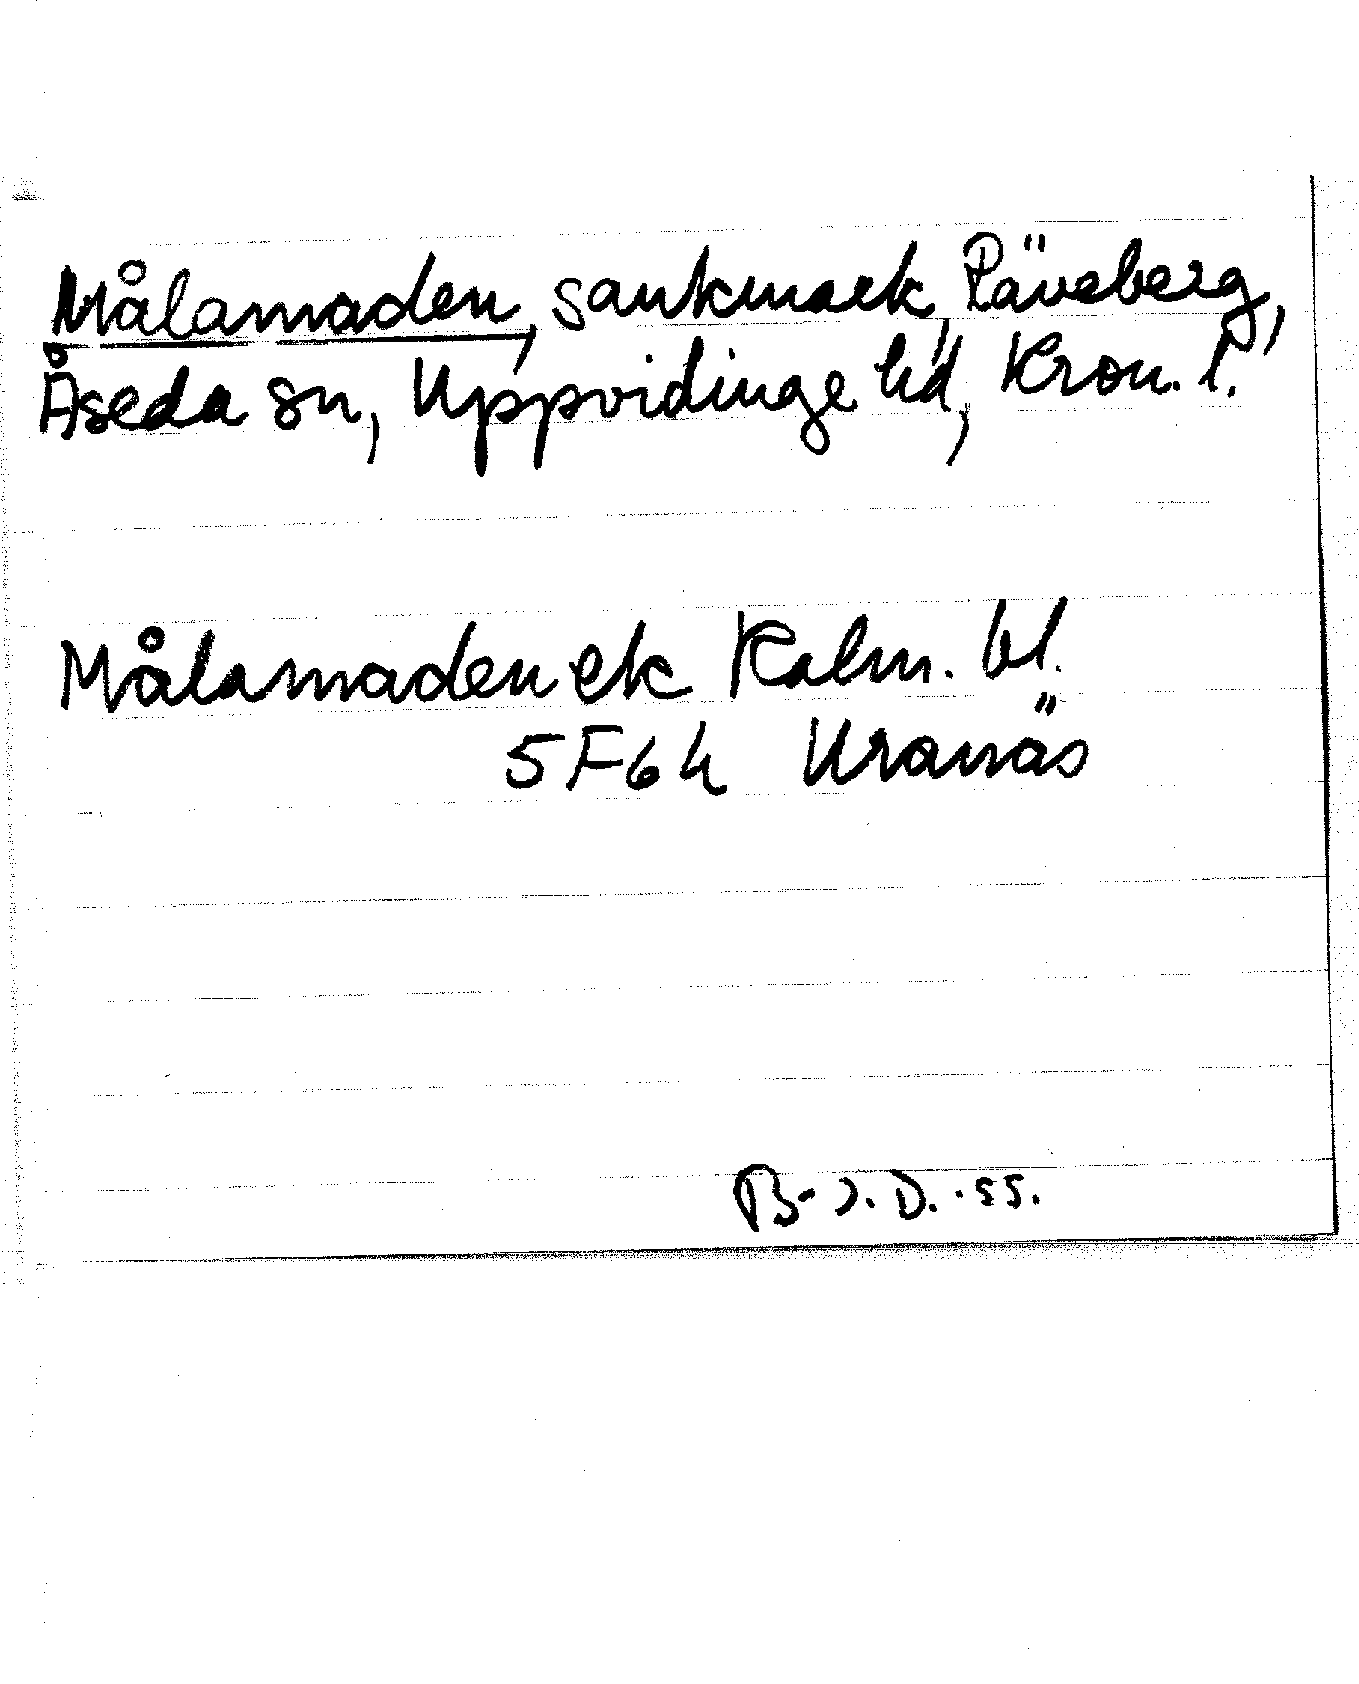 Målamaden, sankmark, Räveberg,
Åseda sn, Uppvidinge hd, Kron. l.
Målamaden ek Kalm. bl.
5F6h Uranäs
B-J.D. -55.